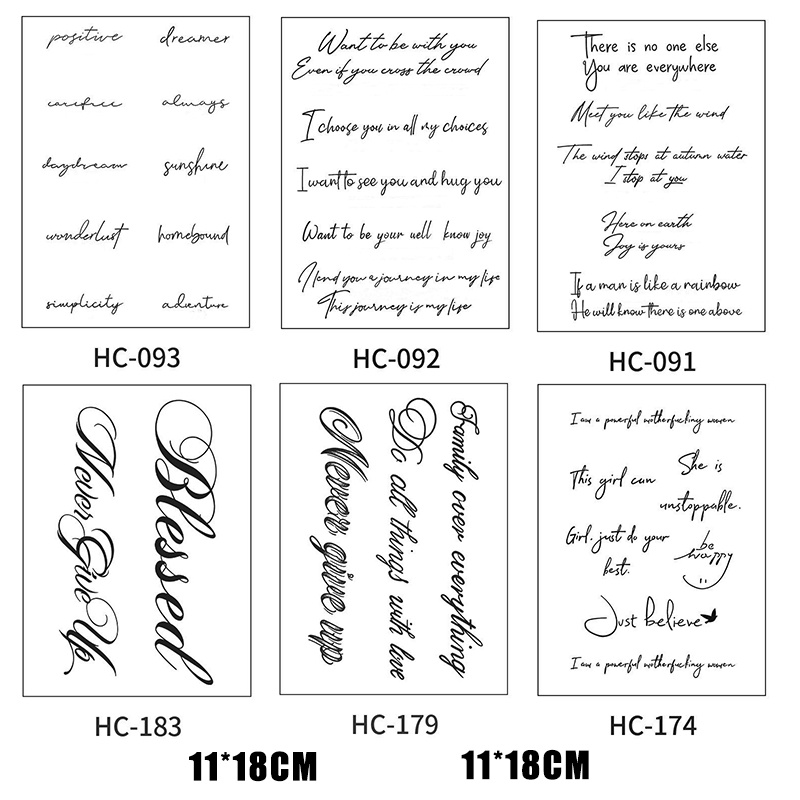 positive dreamer
carefree always
daydream sunshine
wonderlust homebound
simplicity adventure
HC-093
Want to be with you
Even if you cross the crowd
I choose you in all my choices
I want to see you and hug you
Want to be your well know joy
I lend you a journey in my life
This journey is my life
HC-092
There is no one else
You are everywhere
Meet you like the wind
The wind stops at autumn water
I stop at you
Here on earth
Joy is yours
If a man is like a rainbow
He will know there is one above
HC-091
Blessed
Never Give Up
HC-183
Family over everything
Do all things with love
Never give up
HC-179
I am a powerful motherfucking women
This girl can
She is
unstoppable.
Girl, just do your
best.
be
happy
Just believe
I am a powerful motherfucking women
HC-174
11*18CM
11*18CM